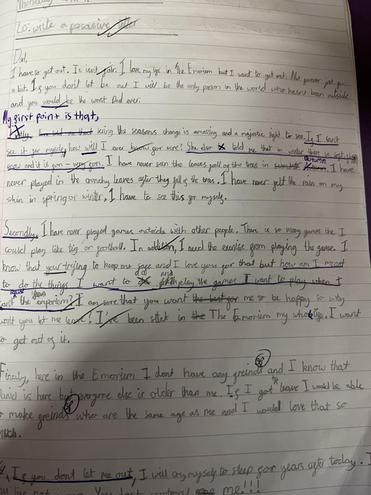 LO: write a persuasive
Dad,
I have to get out. Is isn't fair. I love my life in the Emorium but I want to get out. Not forever just for
a bit. If you don't let be out I will be the only person in the world who hasn't been outside
and you would be the worst Dad ever.
My first point is that,
seeing the seasons change is amazing and a majestic sight to see. If I don't
see it for myself how will I ever know for sure! told me that in winter there is soft
snow and it is I have never seen the leaves fall of the trees in autumn. I have
never played in the crunchy leaves after they fell of the trees. I have never felt the rain on my
skin in spring or winter. I have to see this for myself.
Secondly, I have never played games outside with other people. There is so many games like I
could play like tig or football. In addition, I need the exercise from playing the game. I
know that your trying to keep me safe and I love you for that but how am I meant
to do the things I want to do and play the games I want to play when I
the emporium? I am sure that you want me to be happy so why
wont you let me leave! I've been stuck in the The Emorium my whole life. I want
to get out of it.
Finally, here in the Emorium I dont have any freinds and I know that
is here but everyone else is older than me. If I got leave I would be able
to make freinds who are the same age as me and I would love that so
much.
If you dont let me out, I will cry myself to sleep for years after today. I
me!!!